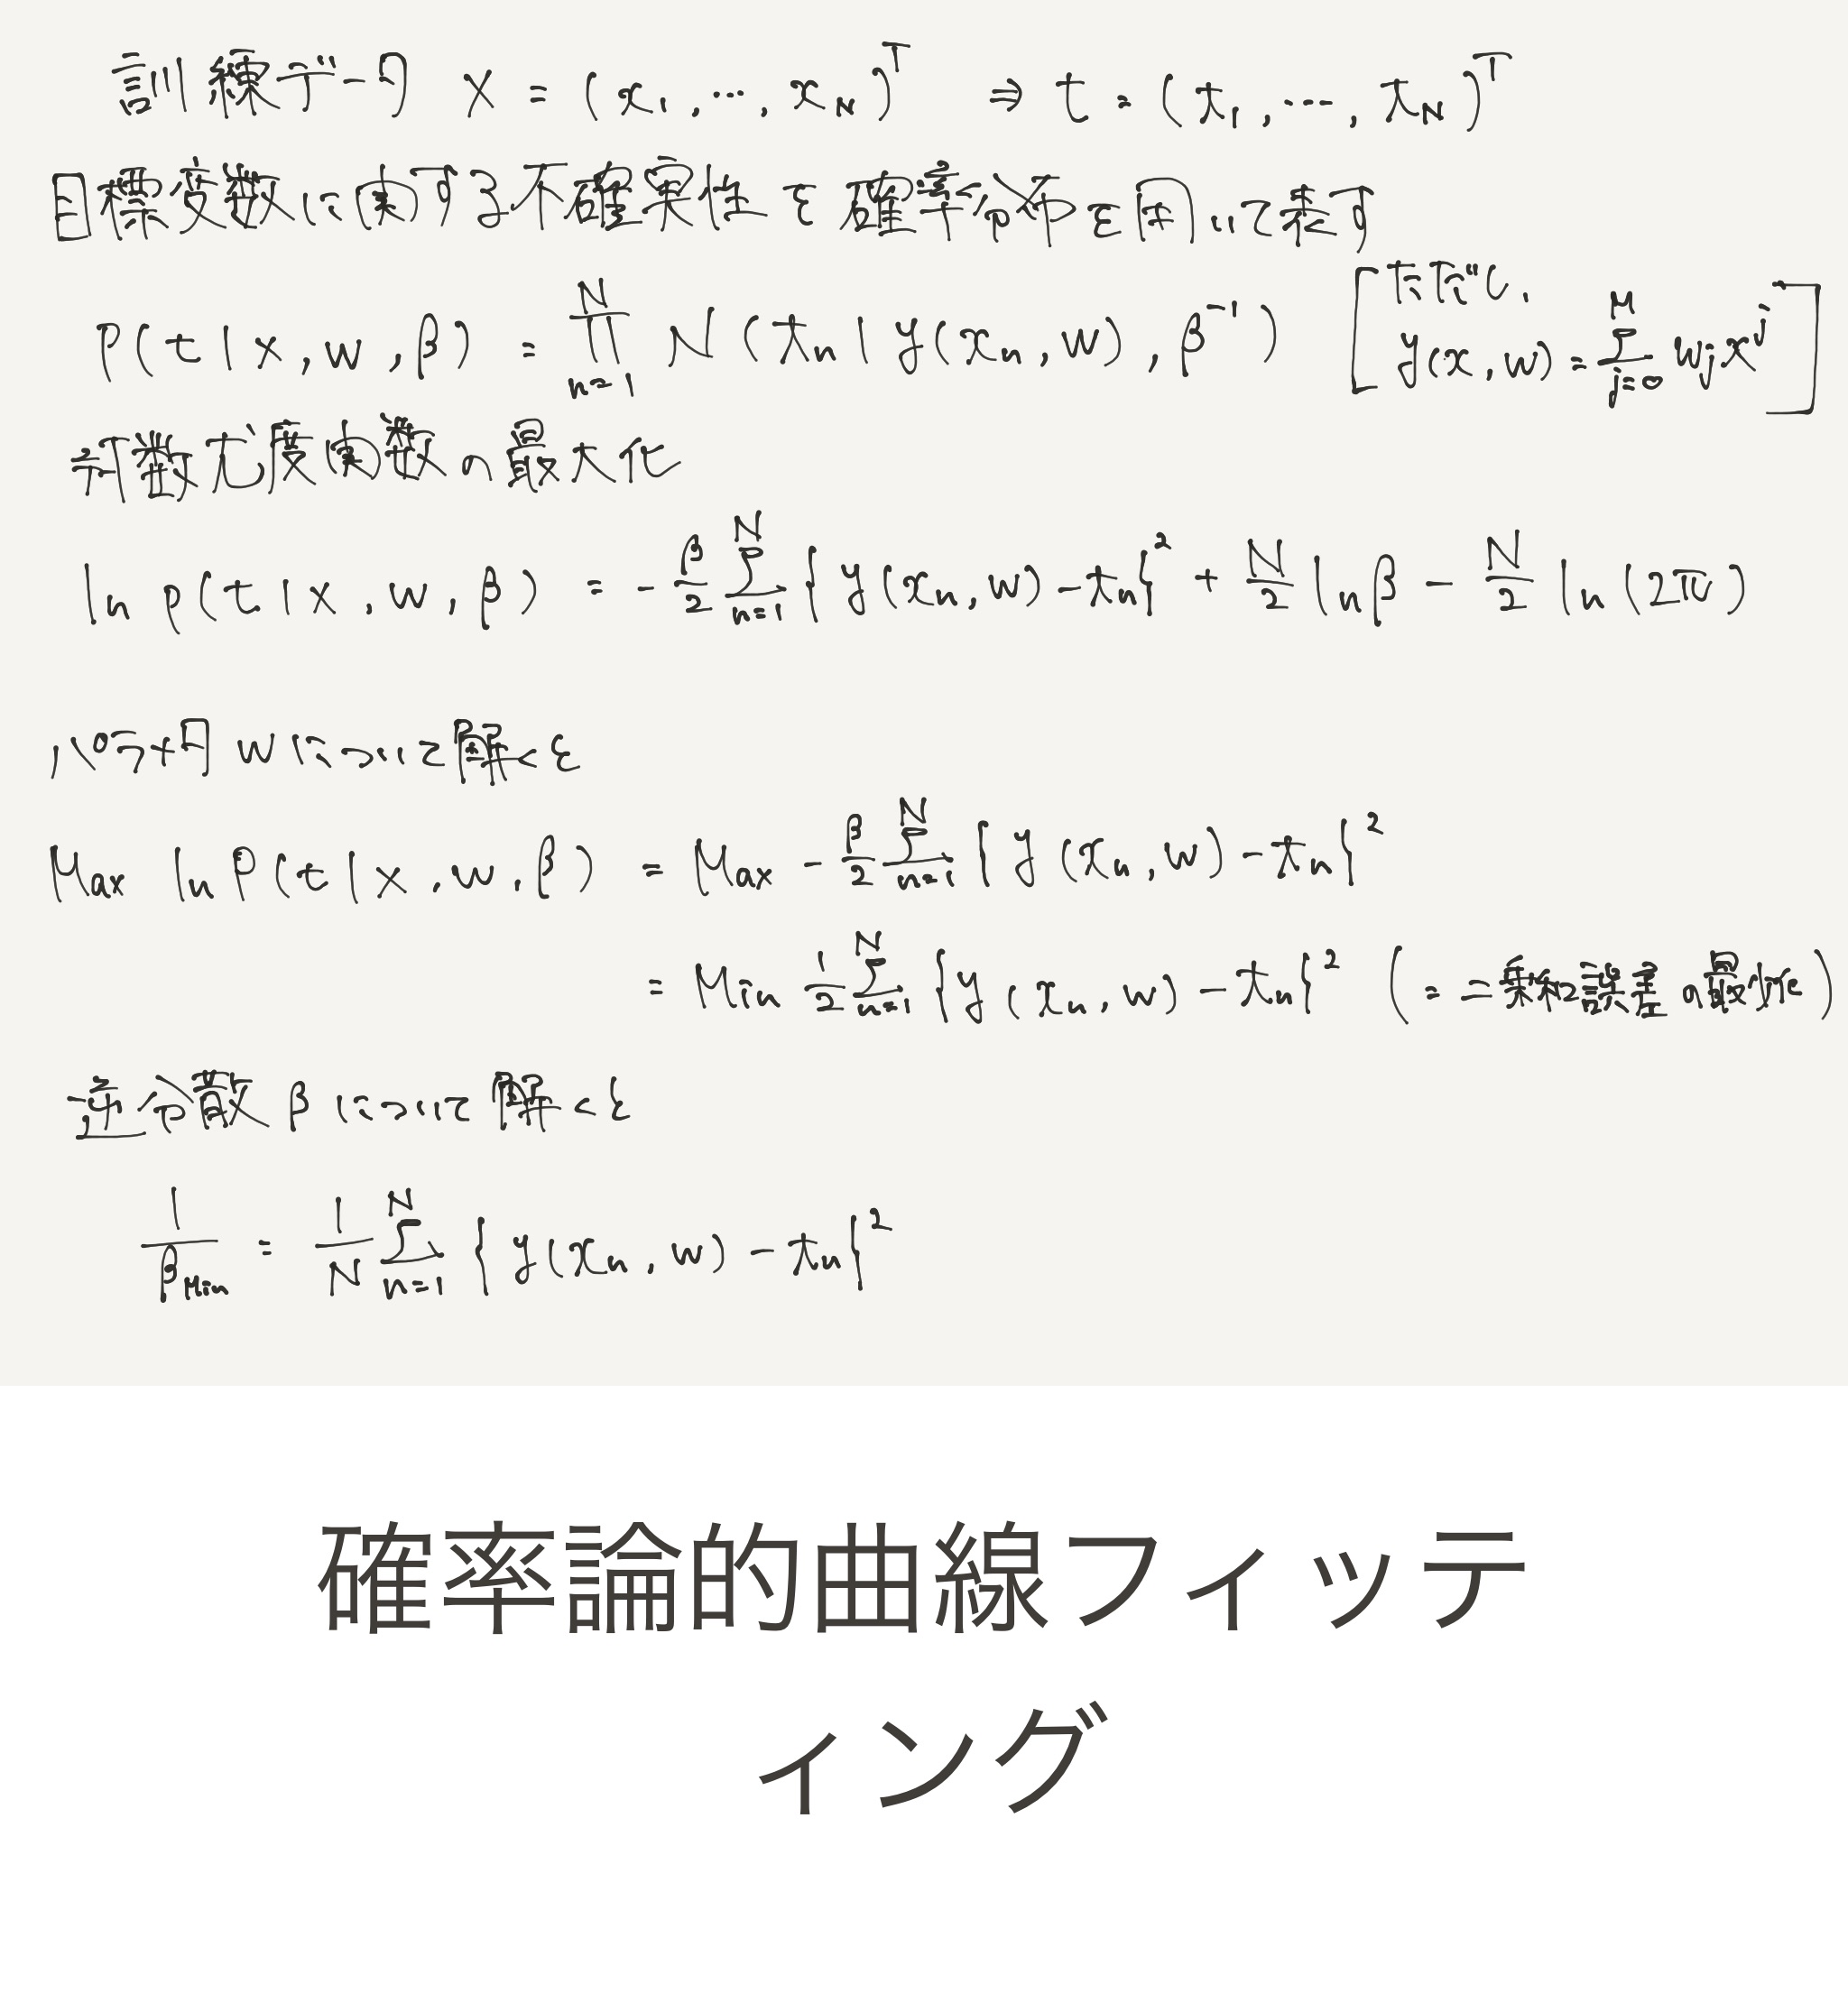 訓練データ x = (x₁, …, x_N)ᵀ ⇒ t = (t₁, …, t_N)ᵀ
目標変数に関する不確実性で確率分布を用いて表す
p(t | x, w, β) = ∏_{n=1}^{N} N(t_n | y(x_n, w), β⁻¹) [ただし、 y(x, w) = Σ_{j=0}^{M} w_j x^j]
対数尤度関数の最大化
ln p(t | x, w, β) = - β/2 Σ_{n=1}^{N} { y(x_n, w) - t_n }² + N/2 ln β - N/2 ln (2π)
パラメタ w について解くと
Max ln P(t | x, w, β) = Max - β/2 Σ_{n=1}^{N} { y(x_n, w) - t_n }²
= Min 1/2 Σ_{n=1}^{N} { y(x_n, w) - t_n }² (= 二乗和誤差の最小化)
逆分散 β について解くと
1/β_{Min} = 1/N Σ_{n=1}^{N} { y(x_n, w) - t_n }²
確率論的曲線フィッテ
ィング